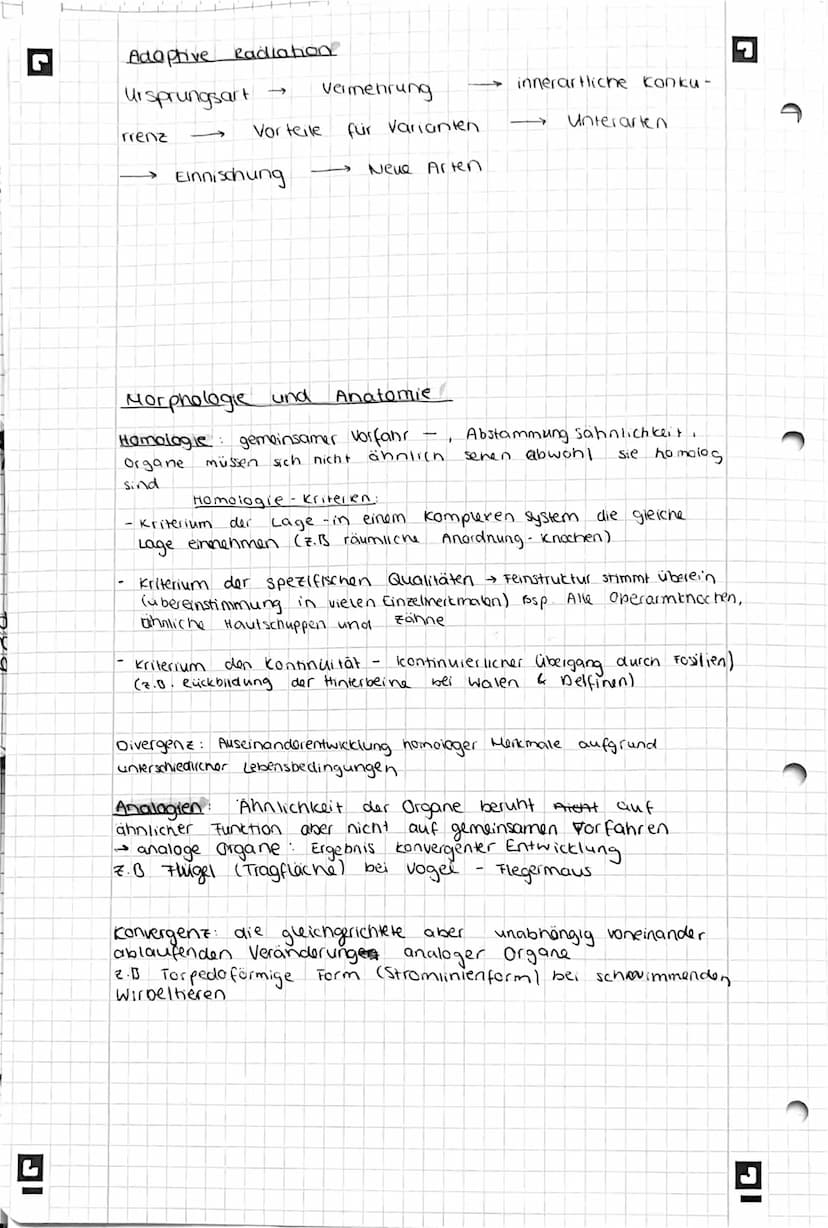 Adaptive Radiation
Ursprungsart → Vermehrung → innerartliche Konku-
rrenz → Vorteile für Varianten → Unterarten
→ Einnischung → Neue Arten
Morphologie und Anatomie
Homologie: gemeinsamer Vorfahr -, Abstammungsähnlichkeit.
Organe müssen sich nicht ähnlich sehen abwohl sie homolog
sind
Homologie-Kriterien:
- Kriterium der Lage - in einem komplexen System die gleiche
Lage einnehmen (z.B räumliche Anordnung - Knochen)
- Kriterium der spezifischen Qualitäten → Feinstruktur stimmt überein
(Übereinstimmung in vielen Einzelmerkmalen) Bsp. Alle Operarmknochen,
ähnliche Hautschuppen und Zähne
- Kriterium den Kontinuität - kontinuierlicher Übergang durch Fosilien)
(z.B. Rückbildung der Hinterbeine bei Walen & Delfinen)
Divergenz: Auseinanderentwicklung homologer Merkmale aufgrund
unterschiedlicher Lebensbedingungen
Analogien: Ähnlichkeit der Organe beruht nicht auf
ähnlicher Funktion aber nicht auf gemeinsamen Vorfahren
→ analoge Organe: Ergebnis konvergenter Entwicklung
z.B Flügel (Tragfläche) bei Vogel - Flegermaus
Konvergenz: die gleichgerichtete aber unabhängig voneinander
ablaufenden Veränderungen analoger Organe
z.B Torpedoförmige Form (Stromlinienform) bei schwimmenden
Wirbeltieren